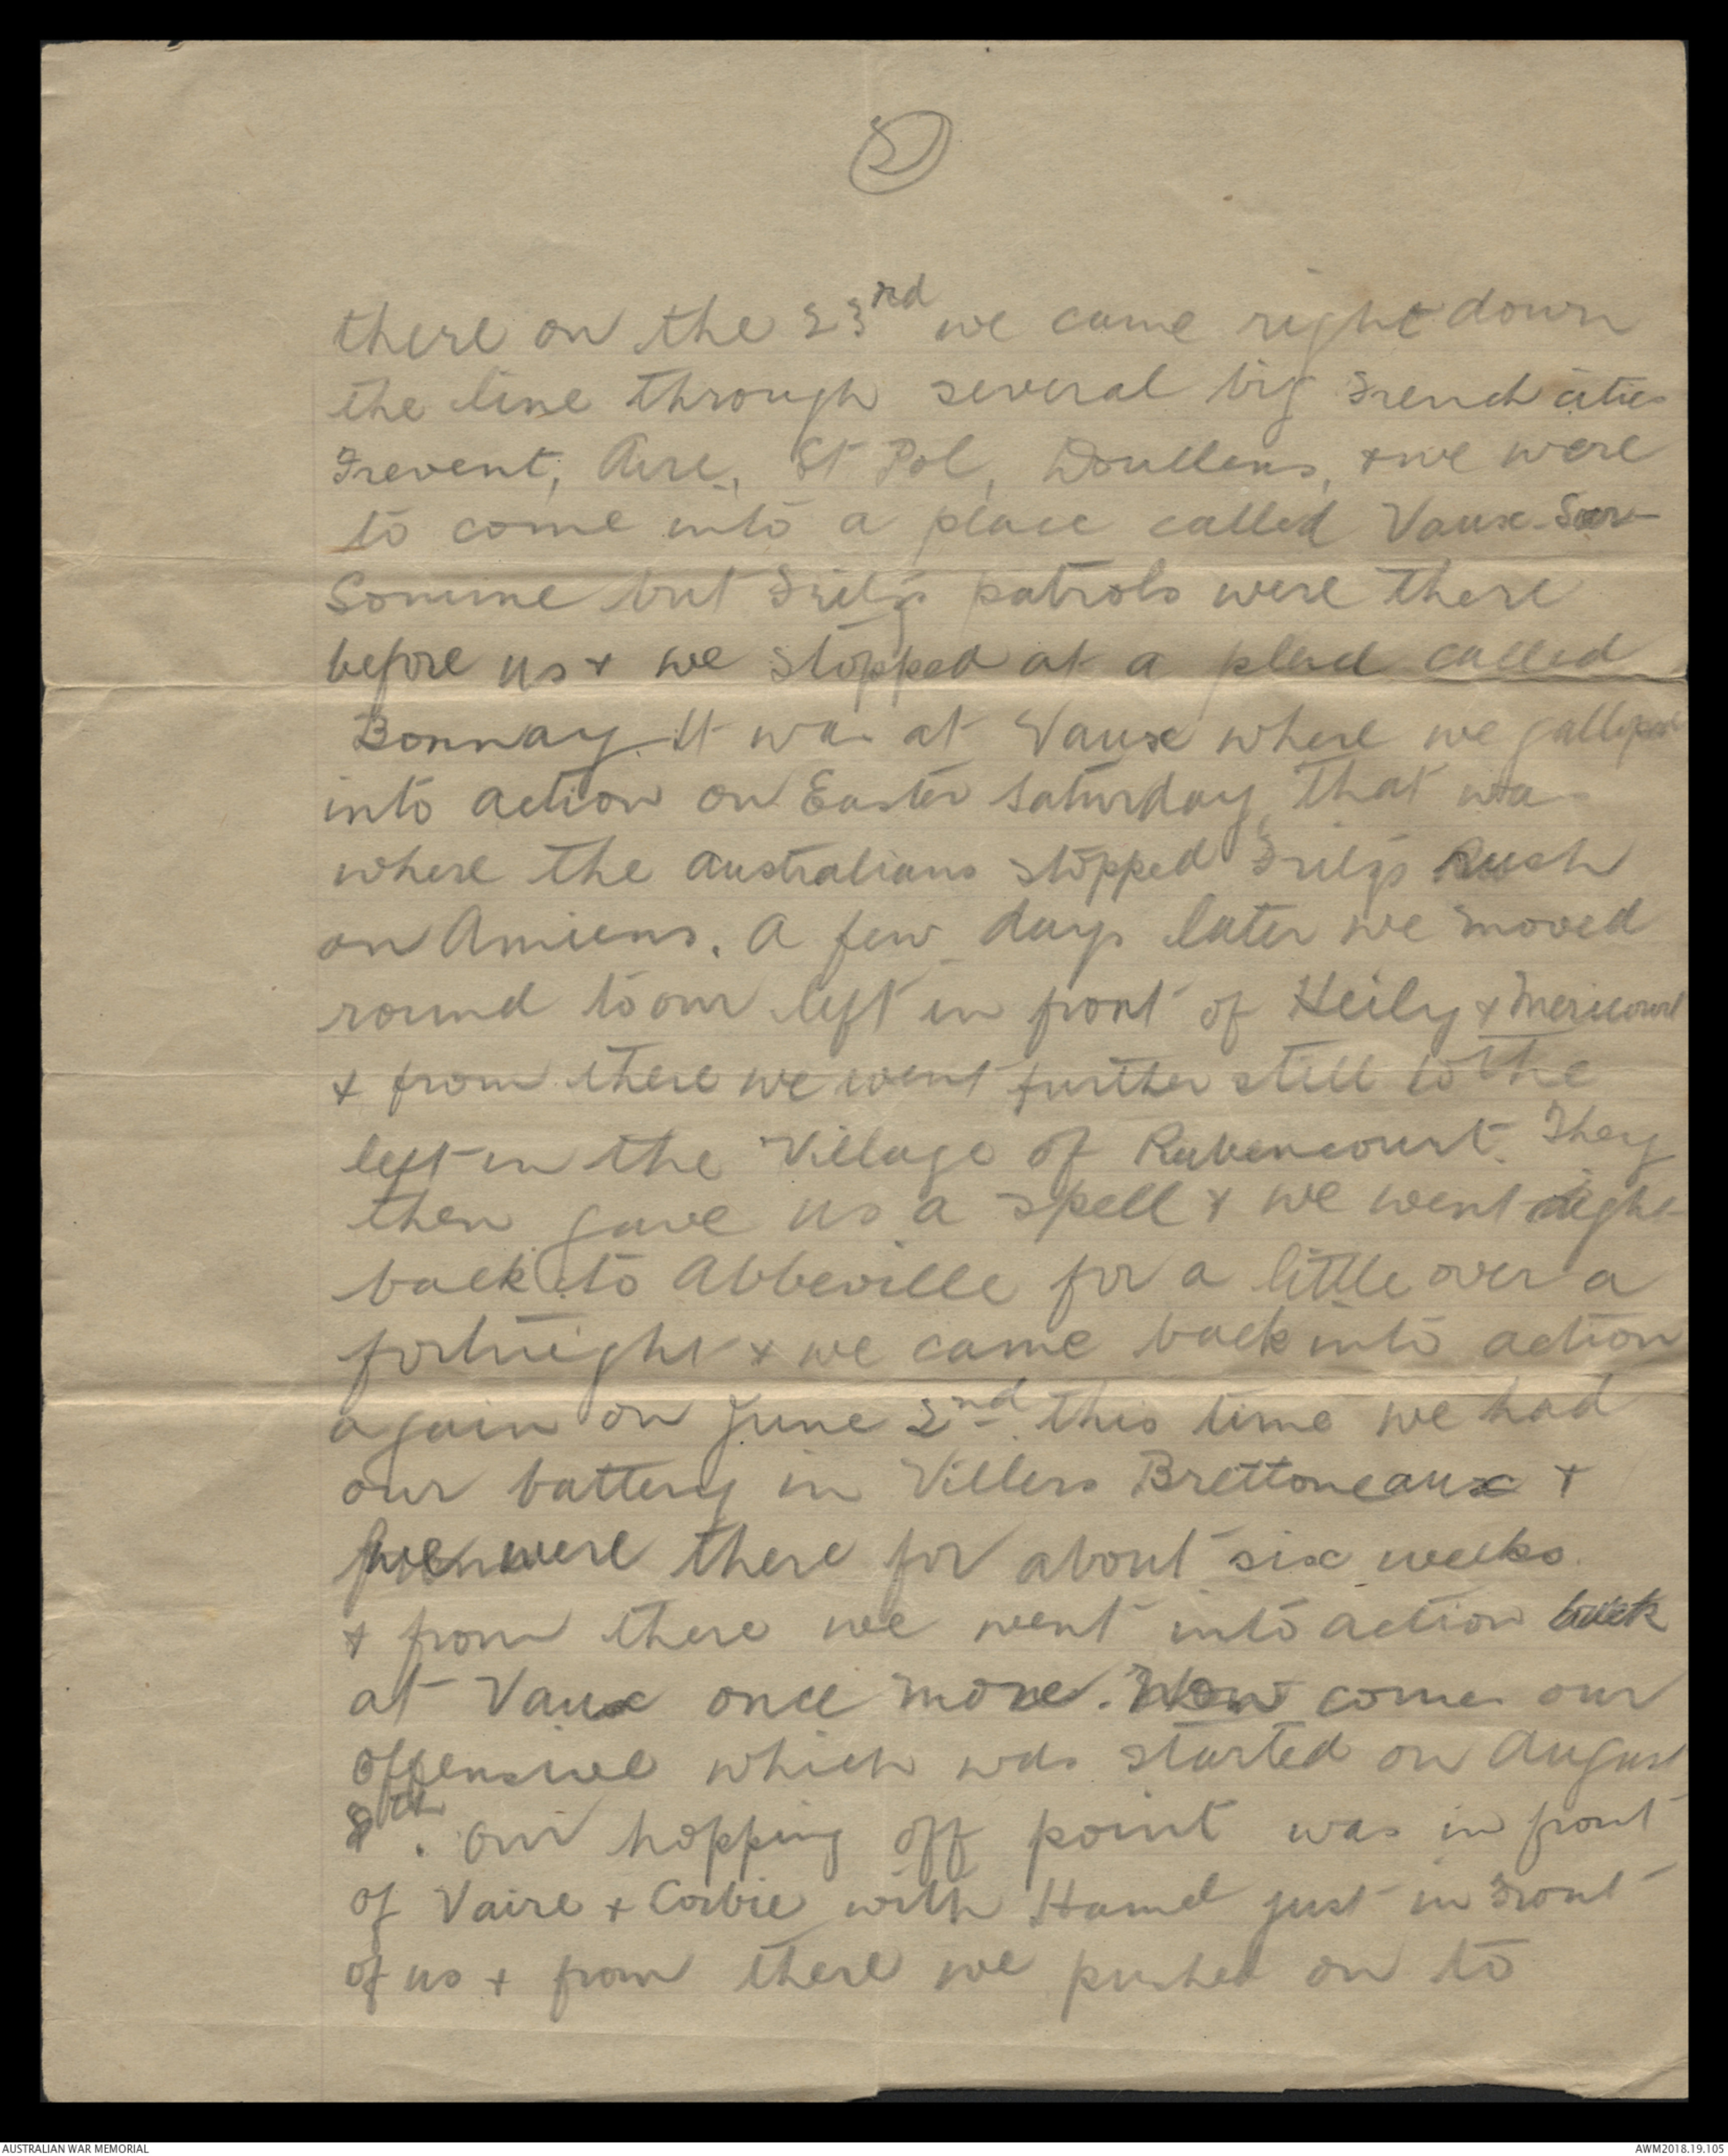 5
there on the 23rd we came right down
the line through several big French cities
Frevent, Aire, St Pol, Doullens, & we were
to come into a place called Vaux-Sur-
Somme but Fritz's patrols were there
before us & we stopped at a place called
Bonnay. It was at Vaux where we galloped
into action on Easter Saturday, that was
where the Australians stopped Fritz's Rush
on Amiens. A few days later we moved
round to our left in front of Heily & Mericourt
& from there we went further still to the
left in the Village of Rubencourt. They
then gave us a spell & we went right
back to Abbeville for a little over a
fortnight & we came back into action
again on June 2nd. this time we had
our battery in Villers Brettoneaux &
we were there for about six weeks.
& from there we went into action back
at Vaux once more. Now comes our
offensive which was started on August
8th. Our hopping off point was in front
of Vaire & Corbie with Hamel just in Front
of us & from there we pushed on to
AUSTRALIAN WAR MEMORIAL
AWM2018.19.105